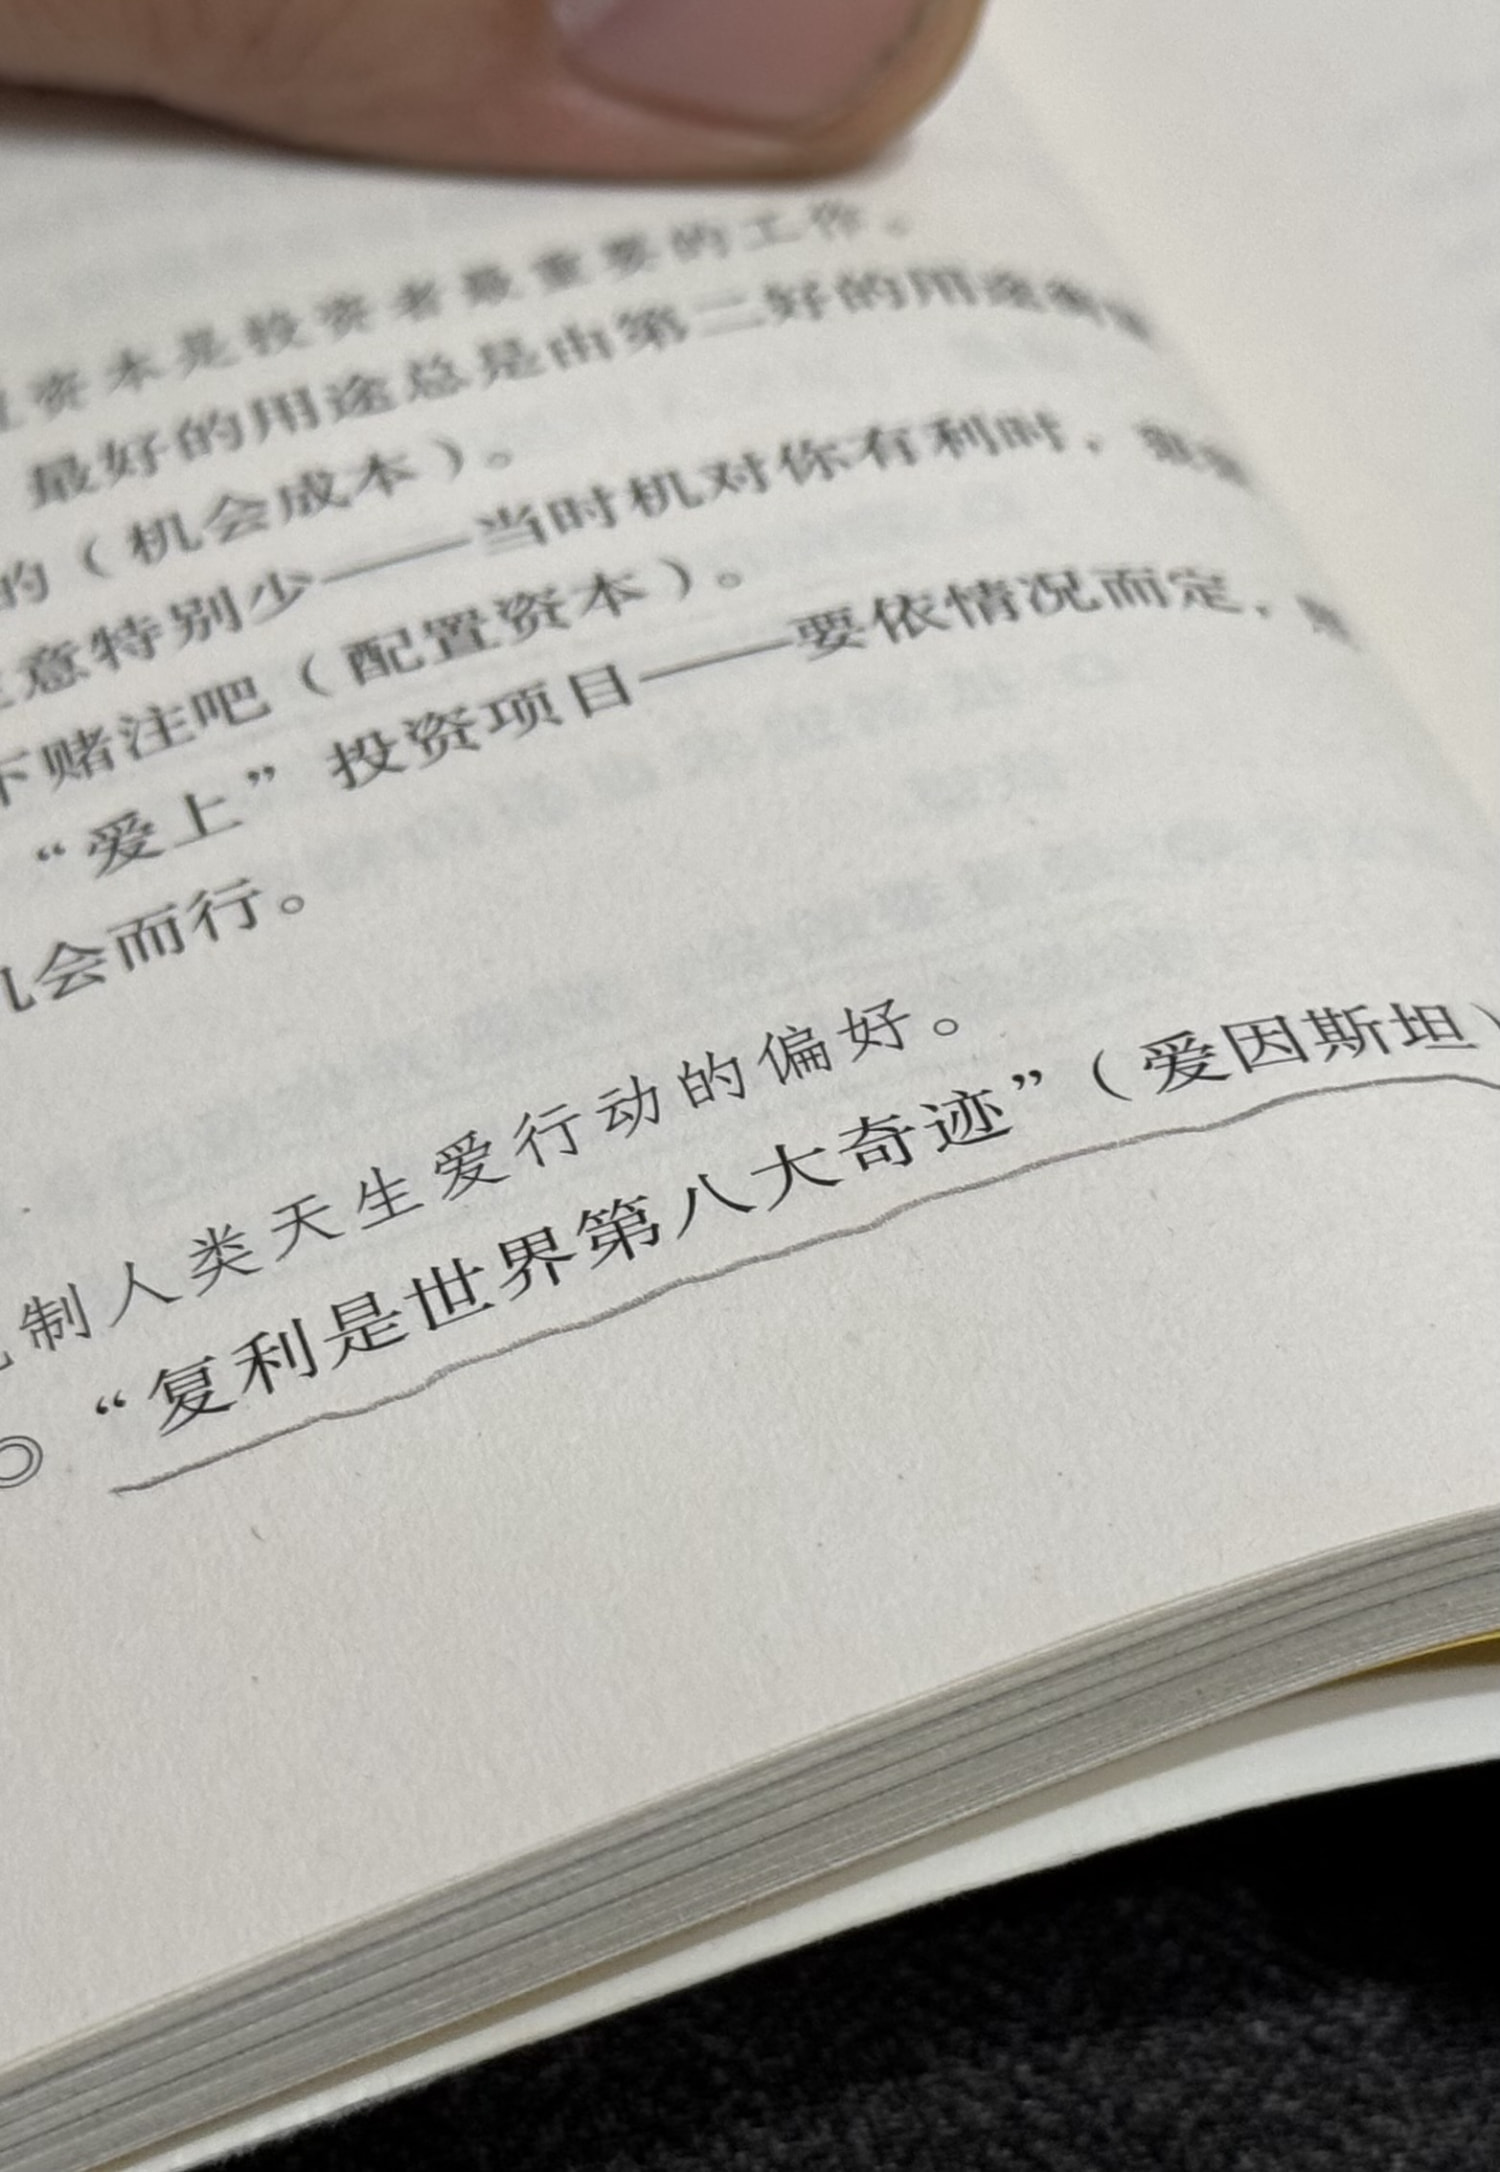 资本是投资者最重要的工作。
最好的用途总是由第二好的用途
的（机会成本）。
意特别少——当时机对你有利时，
下赌注吧（配置资本）。
“爱上”投资项目——要依情况而定，
机会而行。
制人类天生爱行动的偏好。
◎ “复利是世界第八大奇迹”（爱因斯坦）